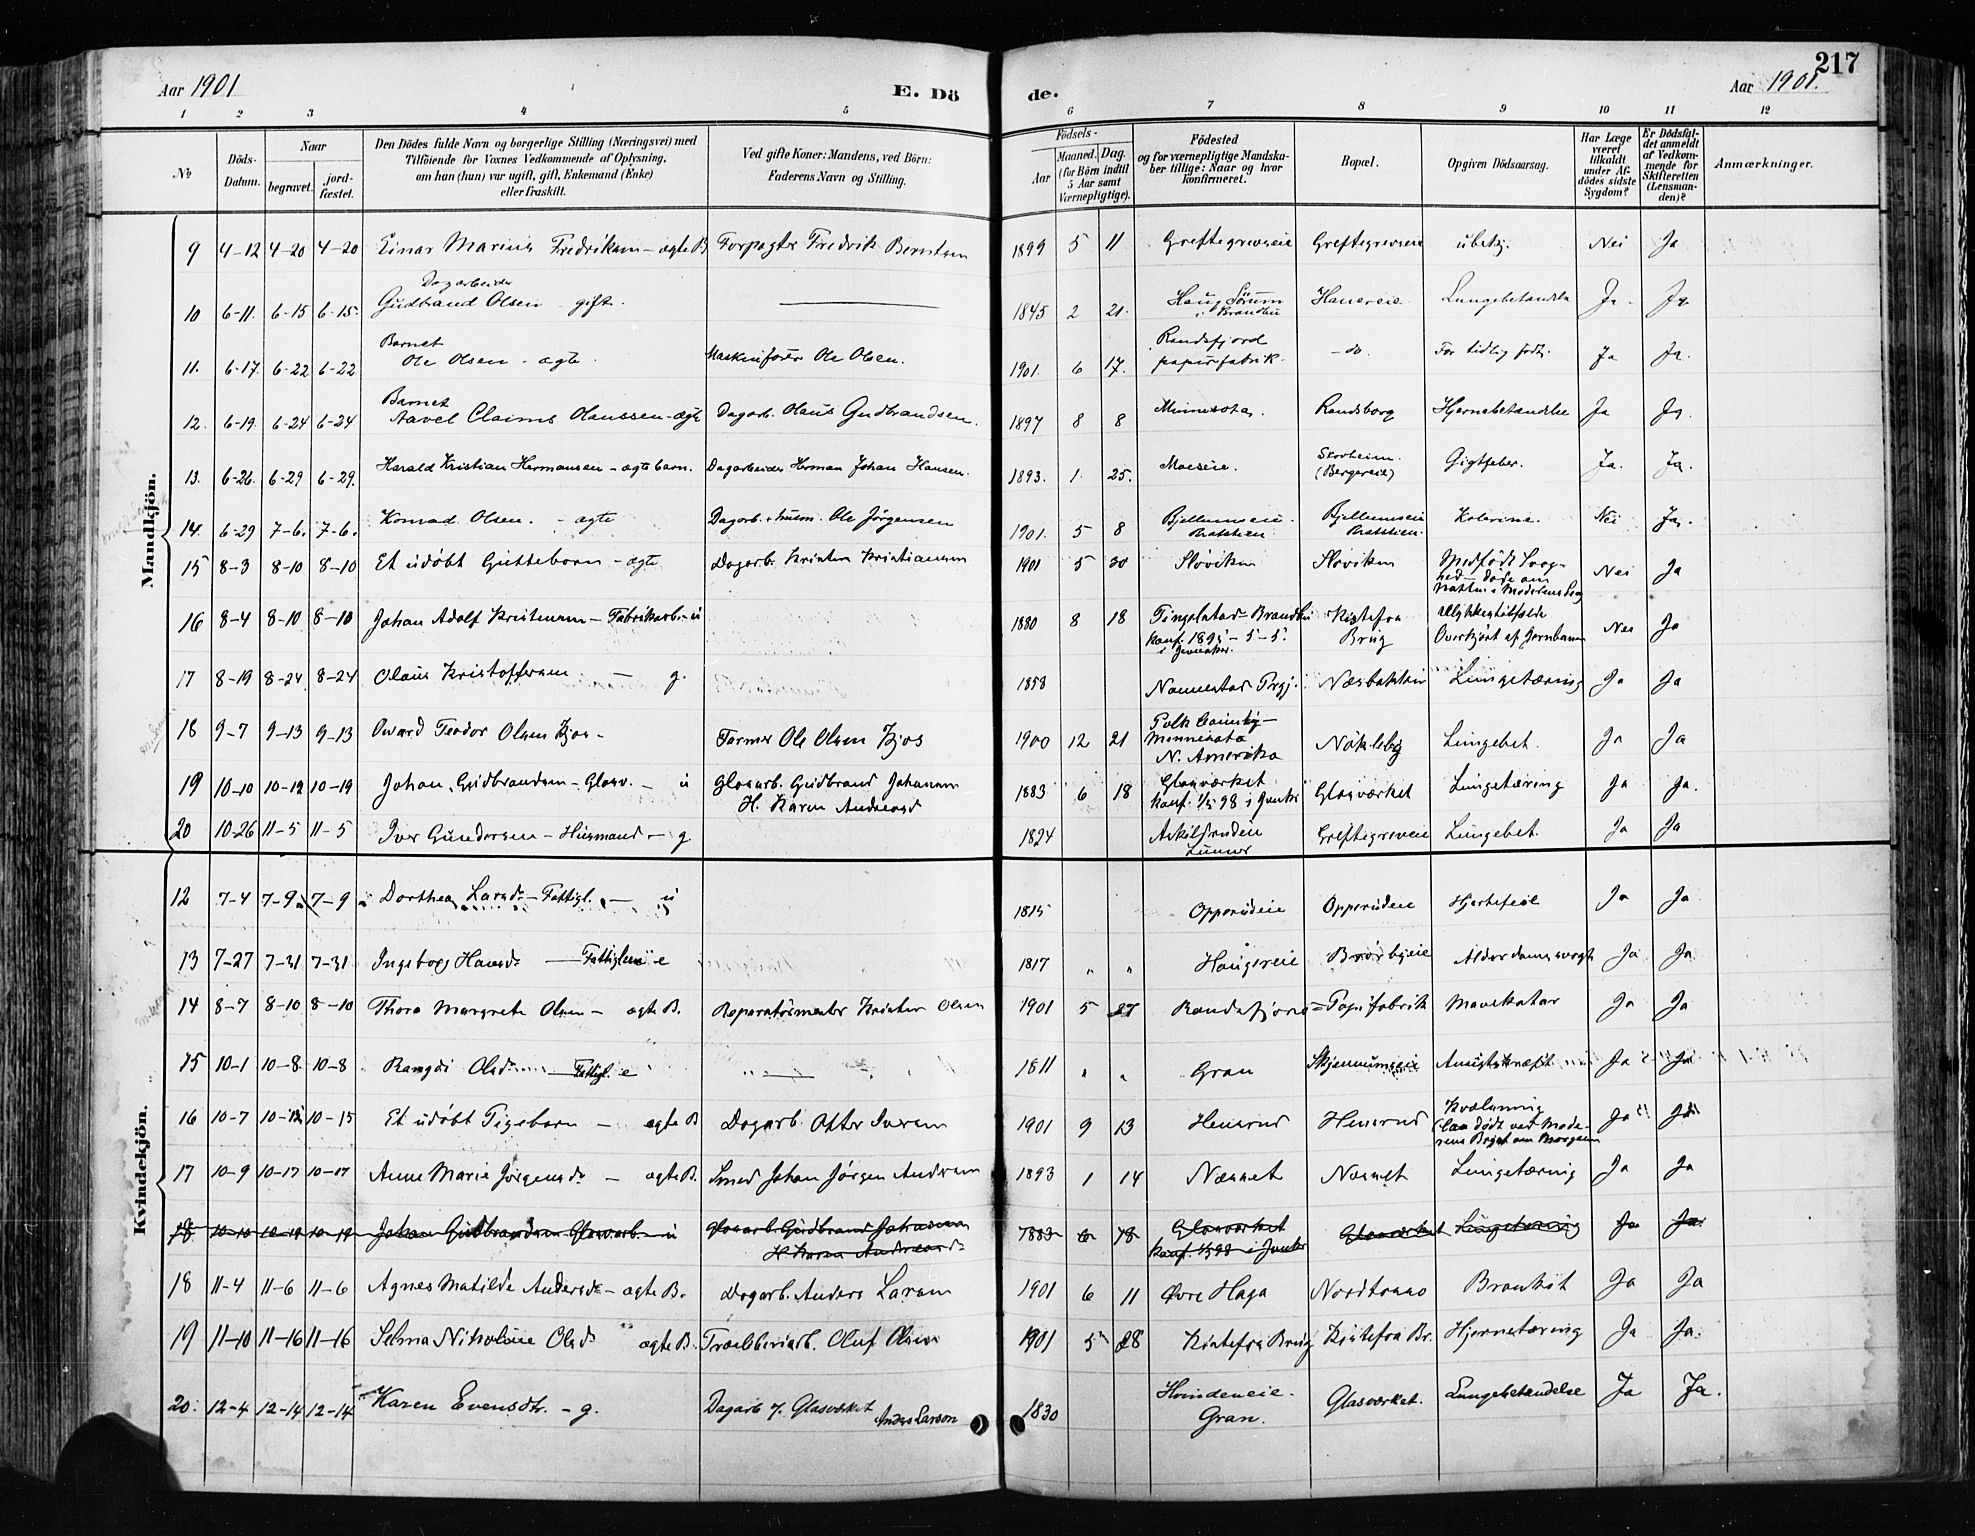 Aar 1901 E. Dö de. Aar 1901. 217
1 2 3 4 5 6 7 8 9 10 11 12
No
Döds-Datum.
Naar
begravet.
jord-fæstet.
Den Dödes fulde Navn og borgerlige Stilling (Næringsvei) med
Tilföiende for Voxnes Vedkommende af Oplysning,
om han (hun) var ugift, gift, Enkemand (Enke)
eller fraskilt.
Ved gifte Koner: Mandens, ved Börn:
Faderens Navn og Stilling.
Födsels-
Aar
Maaned. Dag.
(for Börn indtil
5 Aar samt
Værnepligtige).
Födested
og for værnepligtige Mandska-
ber tillige: Naar og hvor
konfirmeret.
Bopæl.
Opgiven Dödsaarsag.
Har Læge
været
tilkaldt
under Af-
dödes sidste
Sygdom?
Er Dödsfal-
det anmeldt
af Vedkom-
mende for
Skifteretten
(Lensman-
den)?
Anmærkninger.
Mandkjön.
9 4-12 4-20 4-20 Einar Marius Fredriksen - ægte B Forpagter Fredrik Berntsen 1899 5 11 Greftegrevseie Greftegrevseie ubetj. Nei Ja
Dagarbeider
10 6-11. 6-15 6-15. Gudbrand Olsen - gift. 1845 2 21. Haug Sörum i Brandbu Hauereie Lungebetændelse Ja. Ja.
Barnet
11. 6-17. 6-22 6-22 Ole Olsen - ægte. Maskinfører Ole Olsen. 1901. 6 17. Randsfjord papirfabrik. - do. For tidlig født. Ja Ja.
Barnet
12. 6-19. 6-24 6-24 Aavel Claims Olaussen - ægte Dagarb. Olaus Gudbrandsen. 1897 8 8 Minnesota. Randsborg Hjernebetændelse Ja Ja.
13. 6-26. 6-29 6-29. Harald Kristian Hermansen - ægte barn. Dagarbeider Herman Johan Hansen. 1893. 1. 25. Moeseie. Skovheim. (Bergereie) Gigtfeber. Ja. Ja.
14. 6-29 7-6. 7-6. Konrad Olsen. - ægte Dagarb. Ole Jørgensen 1901. 5 8 Bjellumseie. Brattlien. Bjellumseie Brattlien. Kolerine. Nei Ja.
15 8-3 8-10 8-10 Et udøbt Guttebarn - ægte Dagarb. Kristen Kristiansen 1901 5 30 Sløviken Sløviken Medfødt Svag-
hed - døde om
Natten i Moderens Seng Nei Ja
16 8-4 8-10 8-10 Johan Adolf Kristensen - Fabrikarb. - u 1880 8 18 Tingelstad - Brandbu
konf. 1895 - 5 - 5.
i Jevnaker. Kistefos
Brug Ulykkestilfælde
Overkjørt af Jernbanen Nei Ja
17 8-19 8-24 8-24 Olaus Kristoffersen - g. 1858 Nannestad Prgj. Næsbakken Lungetæring Ja Ja
18 9-7 9-13 9-13 Ovard Teodor Olsen Kjos - Farmer Ole Olsen Kjos 1900 12 21 Polk County -
Minnesota
N. Amerika Nøkleby Lungebet. Ja Ja
19 10-10 10-19 10-19 Johan Gudbrandsen - Glasv. - u Glasarb. Gudbrand Johansen
H. Karen Andersd 1883 6 18 Glasværket
konf. 98 i Jevnker Glasværket Lungetæring Ja Ja.
20 10-26 11-5 11-5 Iver Gundersen - Husmand - g 1824 Askilsruden
Lunner Greftegreveie Lungebet. Ja Ja
Kvindekjön.
12 7-4 7-9 7-9 Dorthea Larsd. - Fattigl. - u 1815 Opperudeie Opperudeie Hjertefeil Ja Ja
13 7-27 7-31 7-31 Ingeborg Hansd. - Fattiglem e 1817 " " Haugereie Brørbyeie Alderdomssvagh. Ja Ja.
14 8-7 8-10 8-10 Thora Margrete Olsen - ægte B. Reparatørmester Kristen Olsen 1901 5 27 Randsfjord = Papirfabrik Mavekatar Ja Ja
15 10-1 10-8 10-8 Rangdi Olsd. Fattigl. e 1811 " " Gran Skjennumseie Ansigtskræft Ja Ja
16 10-7 10-15 10-15 Et udøbt Pigebarn - ægte B Dagarb. Otter Iversen 1901 9 13 Henerud Henerud Kvælning
(Laa dødt ved Mode-
rens Bryst om Morgenen Ja Ja
17 10-9 10-17 10-17 Anne Marie Jørgensd. - ægte B. Smed Johan Jørgen Andersen 1893 1 14 Næsset Næsset Lungetæring Ja Ja
18 10-10 10-19 10-19 Johan Gudbrandsen Glasvarb. - u Glasarb. Gudbrand Johansen
H. Karen Andersd. 1883 6 18 Glasværket
konf. 98 i Jevnker Glasværket Lungetæring Ja Ja.
18 11-4 11-6 11-6 Agnes Matilde Andersd. - ægte B. Dagarb. Anders Larsen 1901 6 11 Øvre Haga Nordtomo Bronkit Ja Ja
19 11-10 11-16 11-16 Selma Nikoline Olsd. ægte B. Træsliberiarb. Oluf Olsen 1901 5 28 Kistefos Brug Kistefos Br. Hjernetæring Ja Ja.
20. 12-4 12-14 12-14 Karen Evensdtr. - g. Dagarb v. Glasværket
Anders Larsen 1830 Hvindeneie.
Gran. Glasværket. Lungebetændelse Ja Ja.